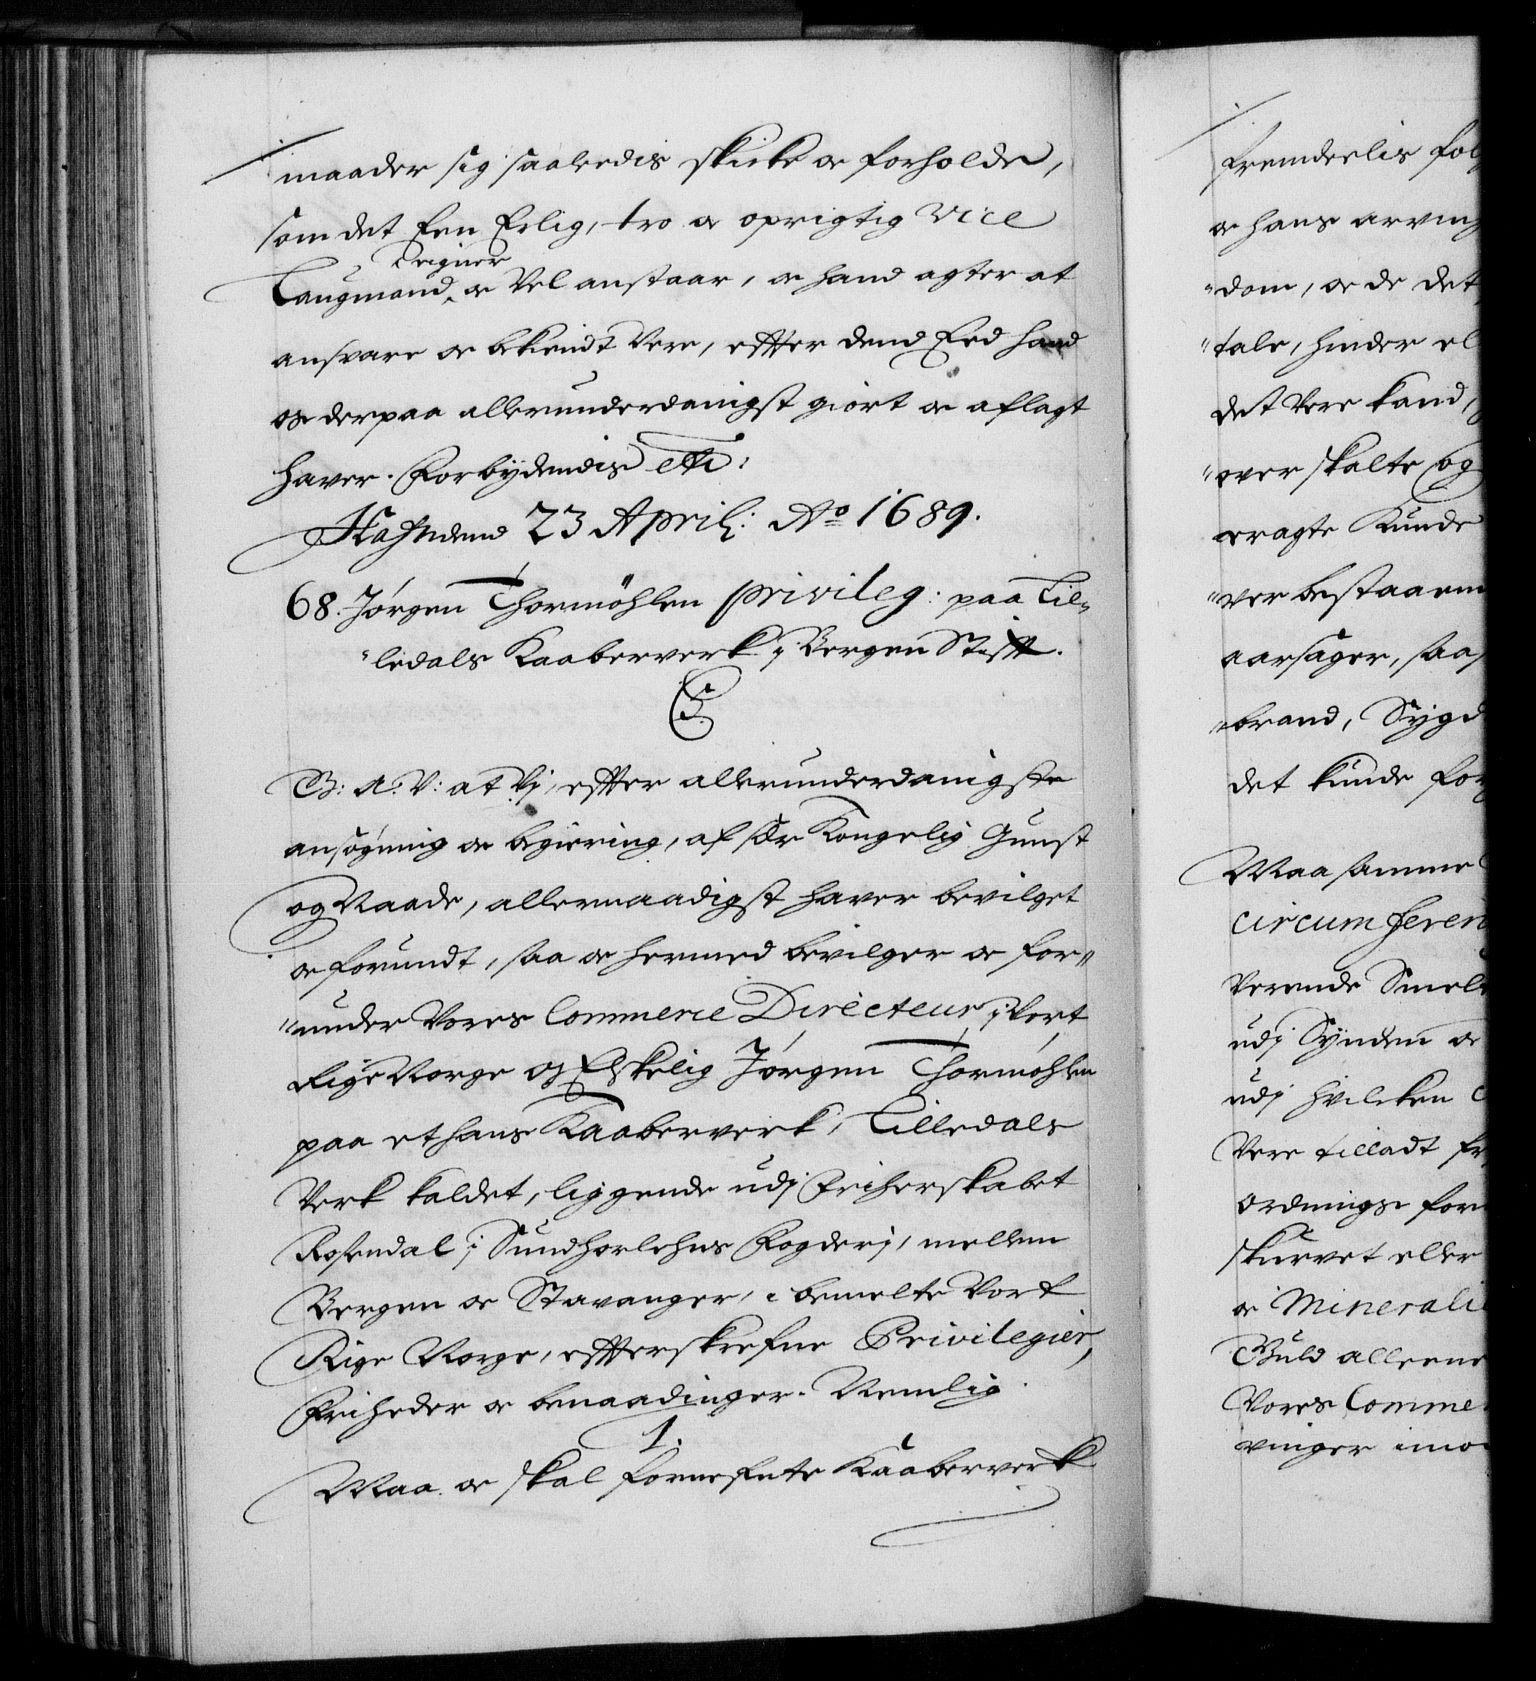 maader sig saaledis skicke oc forholde,
som det Een Erlig, tro oc oprigtig Vice
eigner
Laugmand oc Vel anstaar, oc hand agter at
ansvare oc bekiendt Vere, effter dend Eed hand
os derpaa allerunderdanigst giort oc aflagt
haver. Forbydendis etc:
Hafn dend 23 April: Ao 1689.
68. Jørgen Thormöhlen privileg: paa Lil„
„ledals Kaaberverk i Bergen Stifft.
C5.
G: A: V: at Vi, effter allerunderdanigste
ansøgning oc begiering, af sær Kongelig Gunst
og Naade, allernaadigst haver bevilget
oc forundt, saa oc hermed bevilger oc for„
„under Vores Commerce Directeur i Vort
Rige Norge os Elskelig Jørgen Thormøhlen
paa et hans Kaaberverk, Lilledals
Verk kaldet, liggende udj Friherskabet
Rosendal i Sundhorlehns Fogderj, mellem
Bergen oc Stavanger, i bemelte Vort
Rige Norge, effterskrefne Privilegier,
Friheder oc benaadinger. Nemlig.
1.
Maa oc skal fornefnte Kaaberverk
fremdeelis fol
oc hans arving
„dom, oc de det
„tale, hinder el
det Vere kand,
„over skalte og
bragte Kunde
„ver bestaaen
aarsager, saa
„brand, Sygd
det kunde for
Maa samme
circumferen
Verende Smelt
udj Synden oc
udj hvilcken
Vere tilladt fr
Ordnings for
skurvet eller
oc Minerali
Guld alleene
Vores Comme
vinger imo